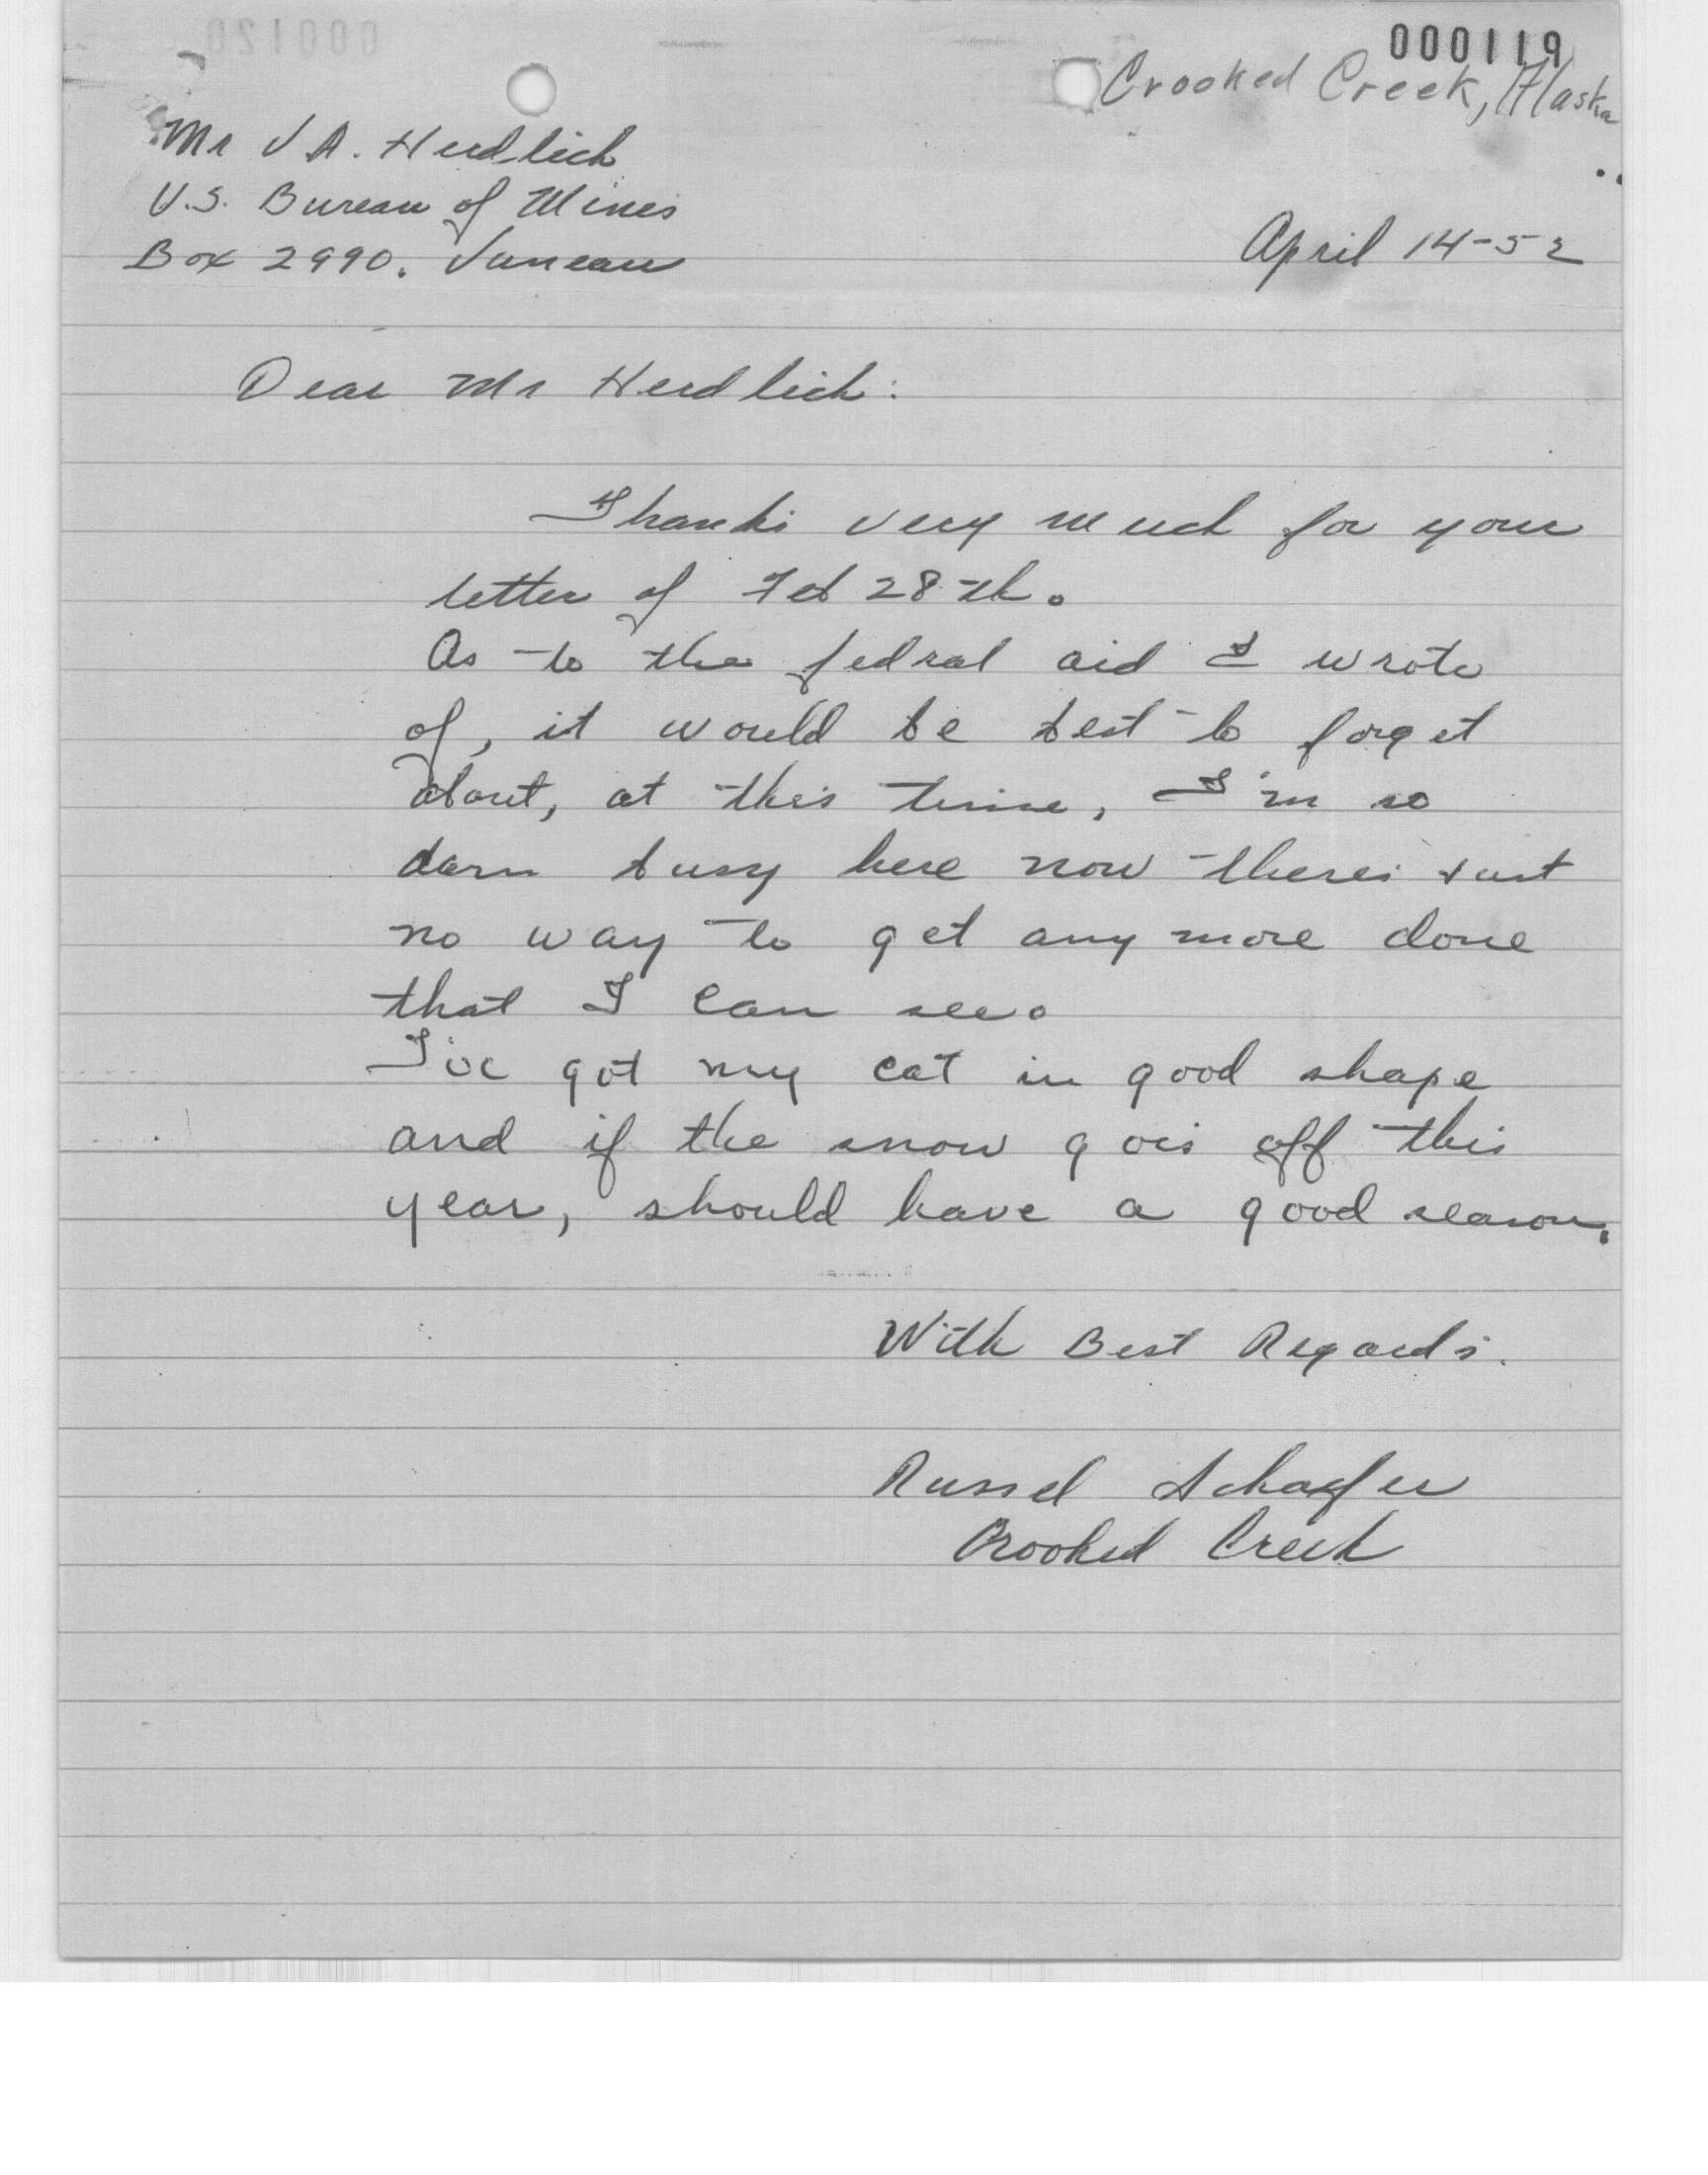 000119
Crooked Creek, Alaska
Mr J A. Herdlick
U.S. Bureau of Mines
Box 2990. Juneau
April 14-52
Dear Mr Herdlick:
Thanks very much for your
letter of Feb 28th.
As to the fedral aid I wrote
of, it would be best to forget
about, at this time, I'm so
darn busy here now theres just
no way to get any more done
that I can see.
I've got my cat in good shape
and if the snow goes off this
year, should have a good season.
With Best Regards.
Russel Schaefer
Crooked Creek